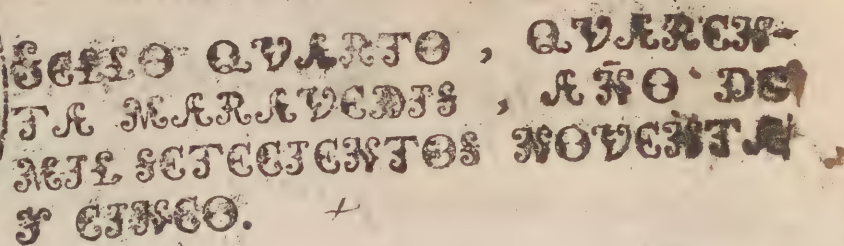 SELLO QVARTO, QVAREN-
TA MARAVEDIS, AÑO DE
MIL SETECIENTOS NOVENTA
Y CINCO.